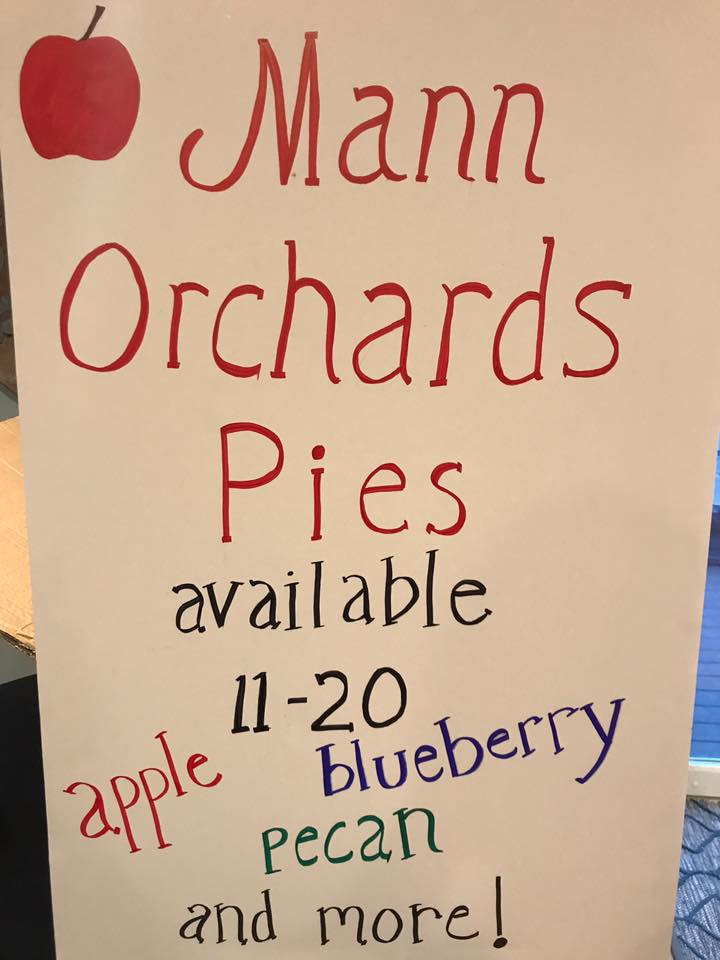 Mann
Orchards
Pies
available
11-20
apple blueberry
pecan
and more!